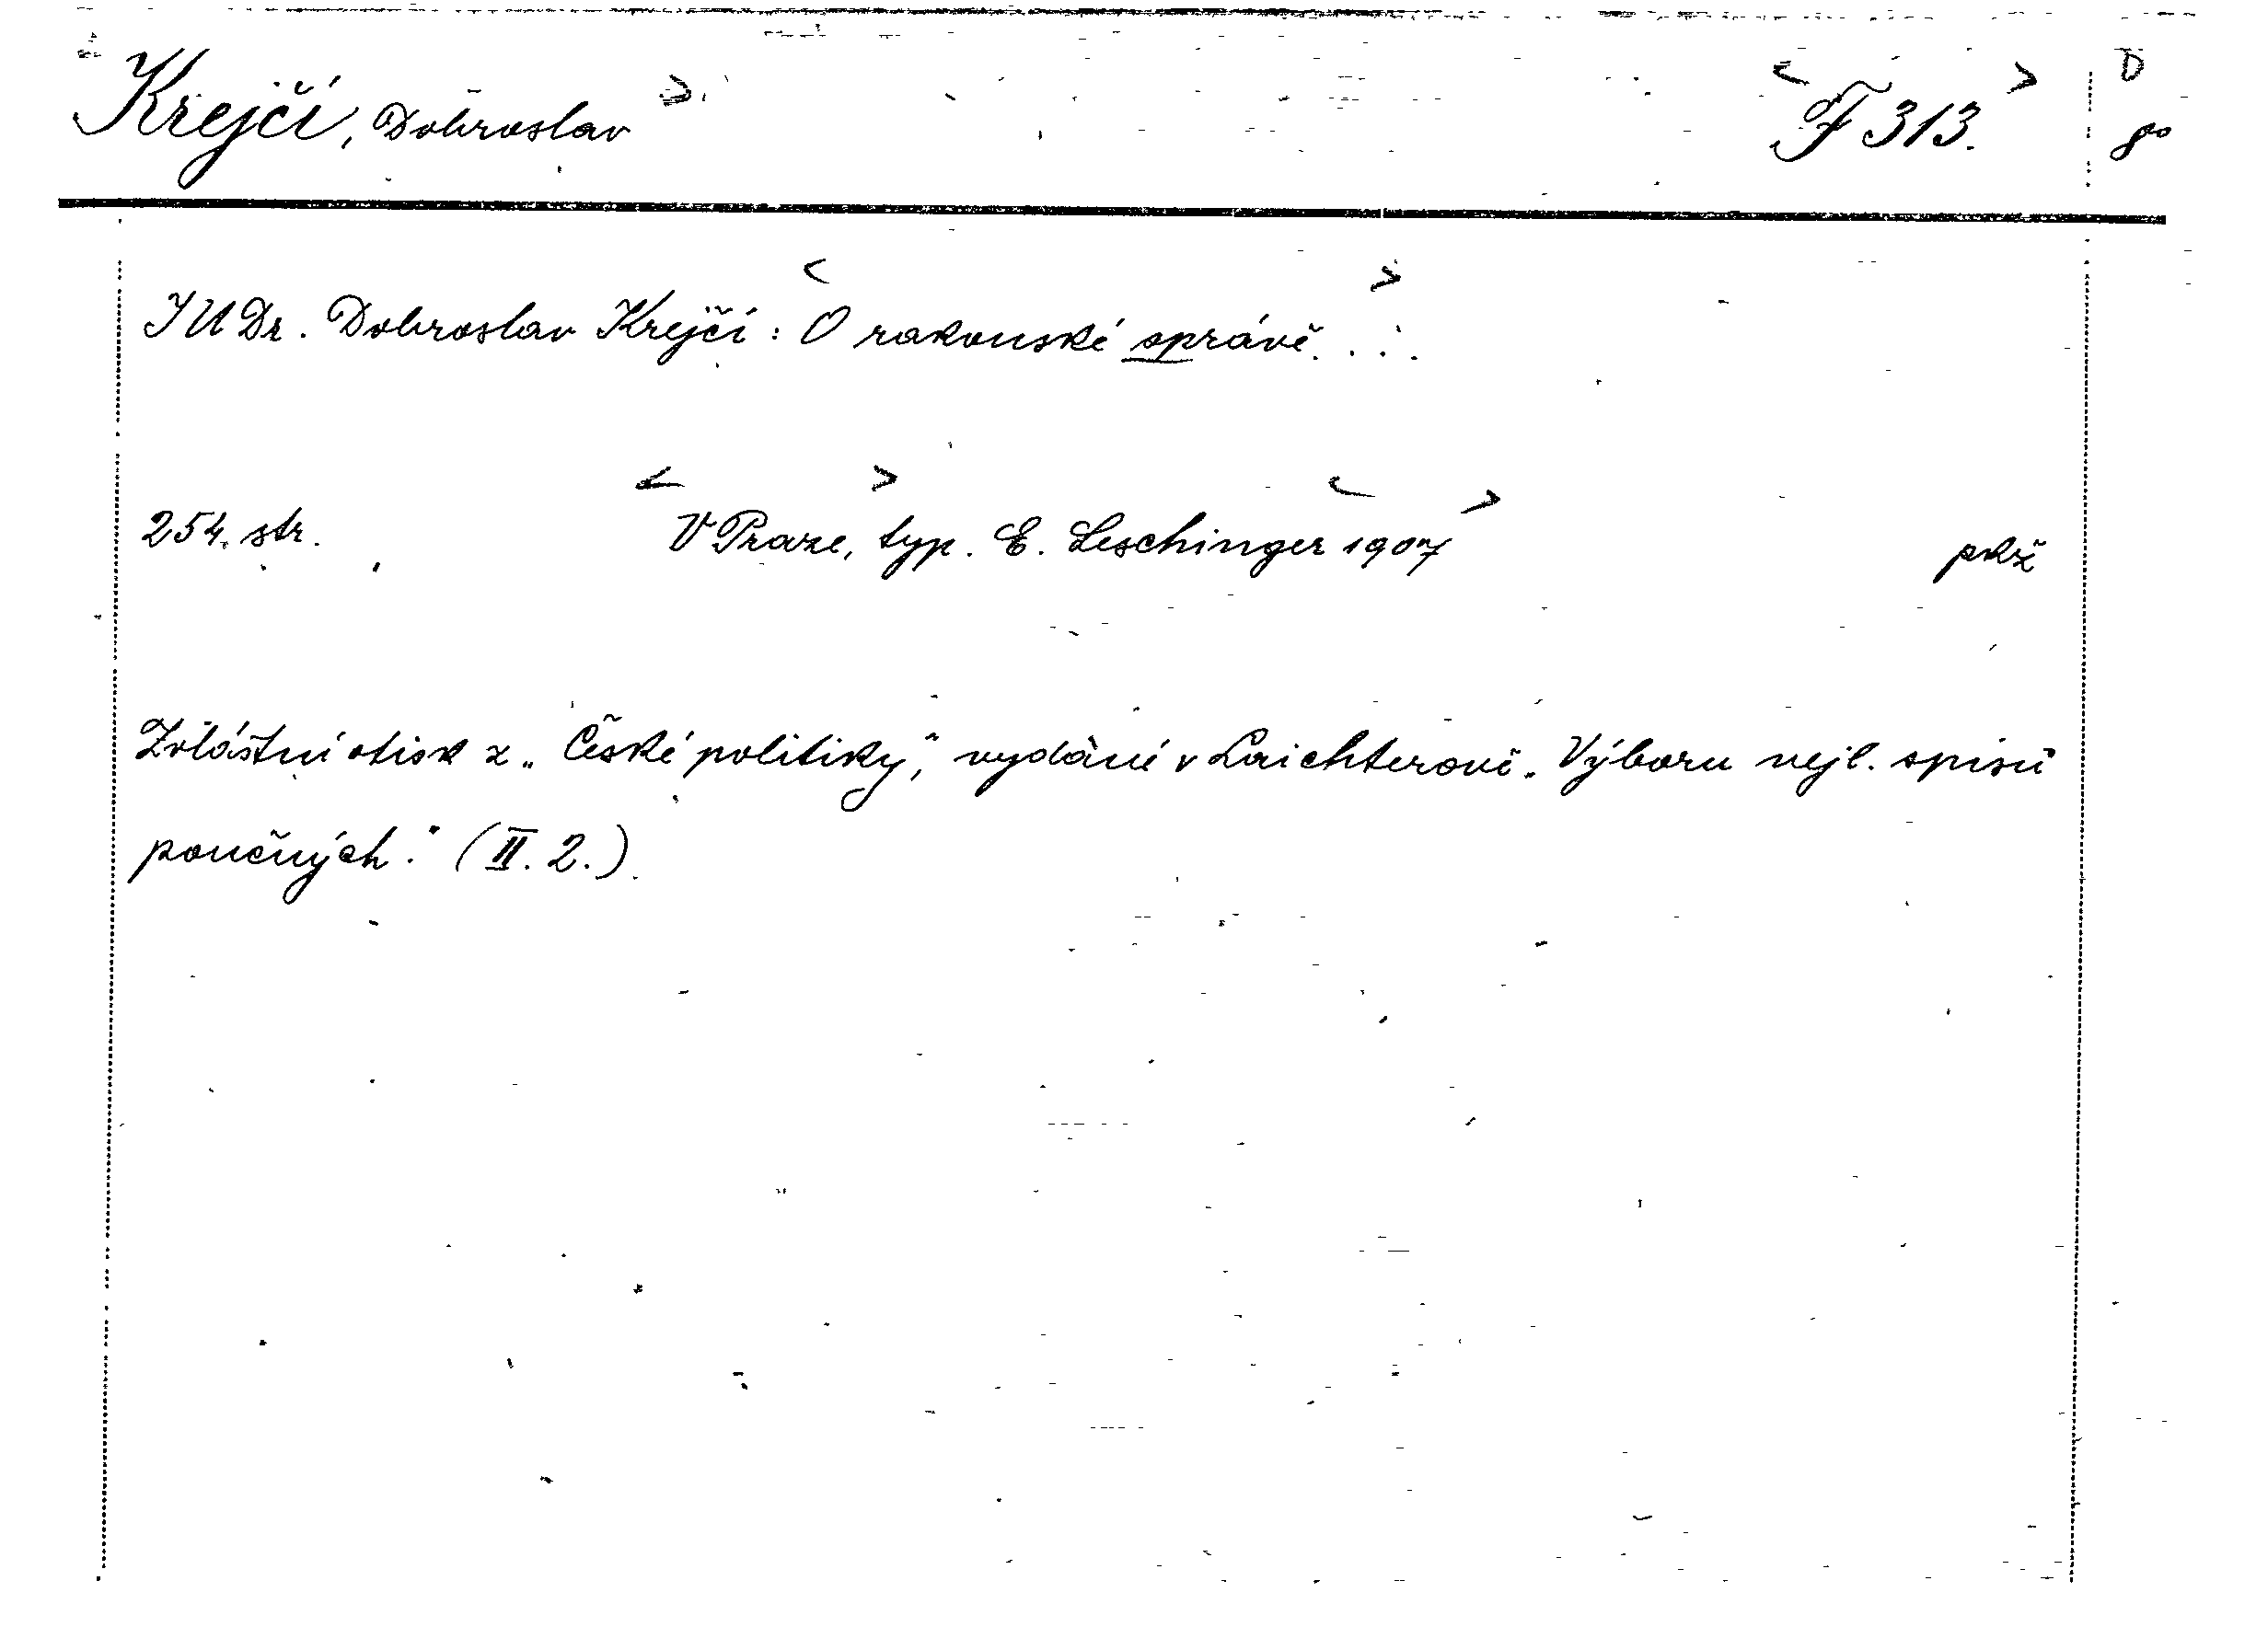 Krejčí, Dobroslav < F 313. > D
8°
JUDr. Dobroslav Krejčí: O rakouské správě...
254 str. V Praze, typ. E. Leschinger 1907 pkž
Zvláštní otisk z „České politiky," vydané v Laichterově „Výboru nejl. spisů
poučných." (II. 2.)